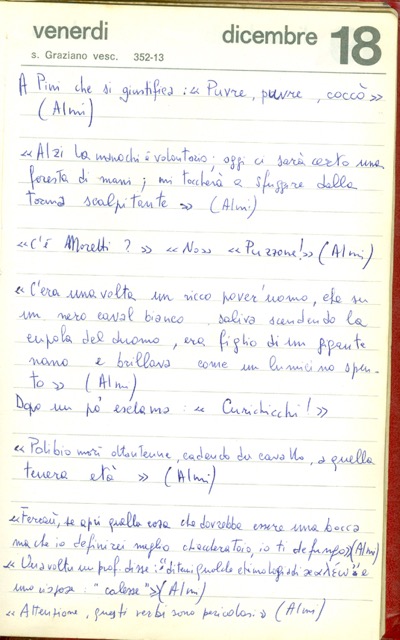 venerdi dicembre 18
s. Graziano vesc. 352-13
A Pini che si giustifica : « Puvre, puvre, coccò »
(Almi)
« Alzi la mano chi è volontario; oggi ci sarà certo una
foresta di mani; mi toccherà a sfuggire dalla
torma scalpitante » (Almi)
« C'è Moretti? » « No » « Puzzone! » (Almi)
« C'era una volta un ricco pover'uomo, che su
un nero caval bianco saliva scendendo la
cupola del duomo, era figlio di un gigante
nano e brillava come un lumicino spen-
to » (Almi)
Dopo un pò esclama : « Curichicchi! »
« Polibio morì ottantenne, cadendo da cavallo, a quella
tenera età » (Almi)
« Ferraù, se apri quella cosa che dovrebbe essere una bocca
ma che io definirei meglio chiacchieratoio, io ti defungo » (Almi)
« Una volta un prof. disse : "ditemi qualche etimologia di καλέω" e
uno rispose : " calesse" » (Almi)
« Attenzione, questi verbi sono pericolosi » (Almi)